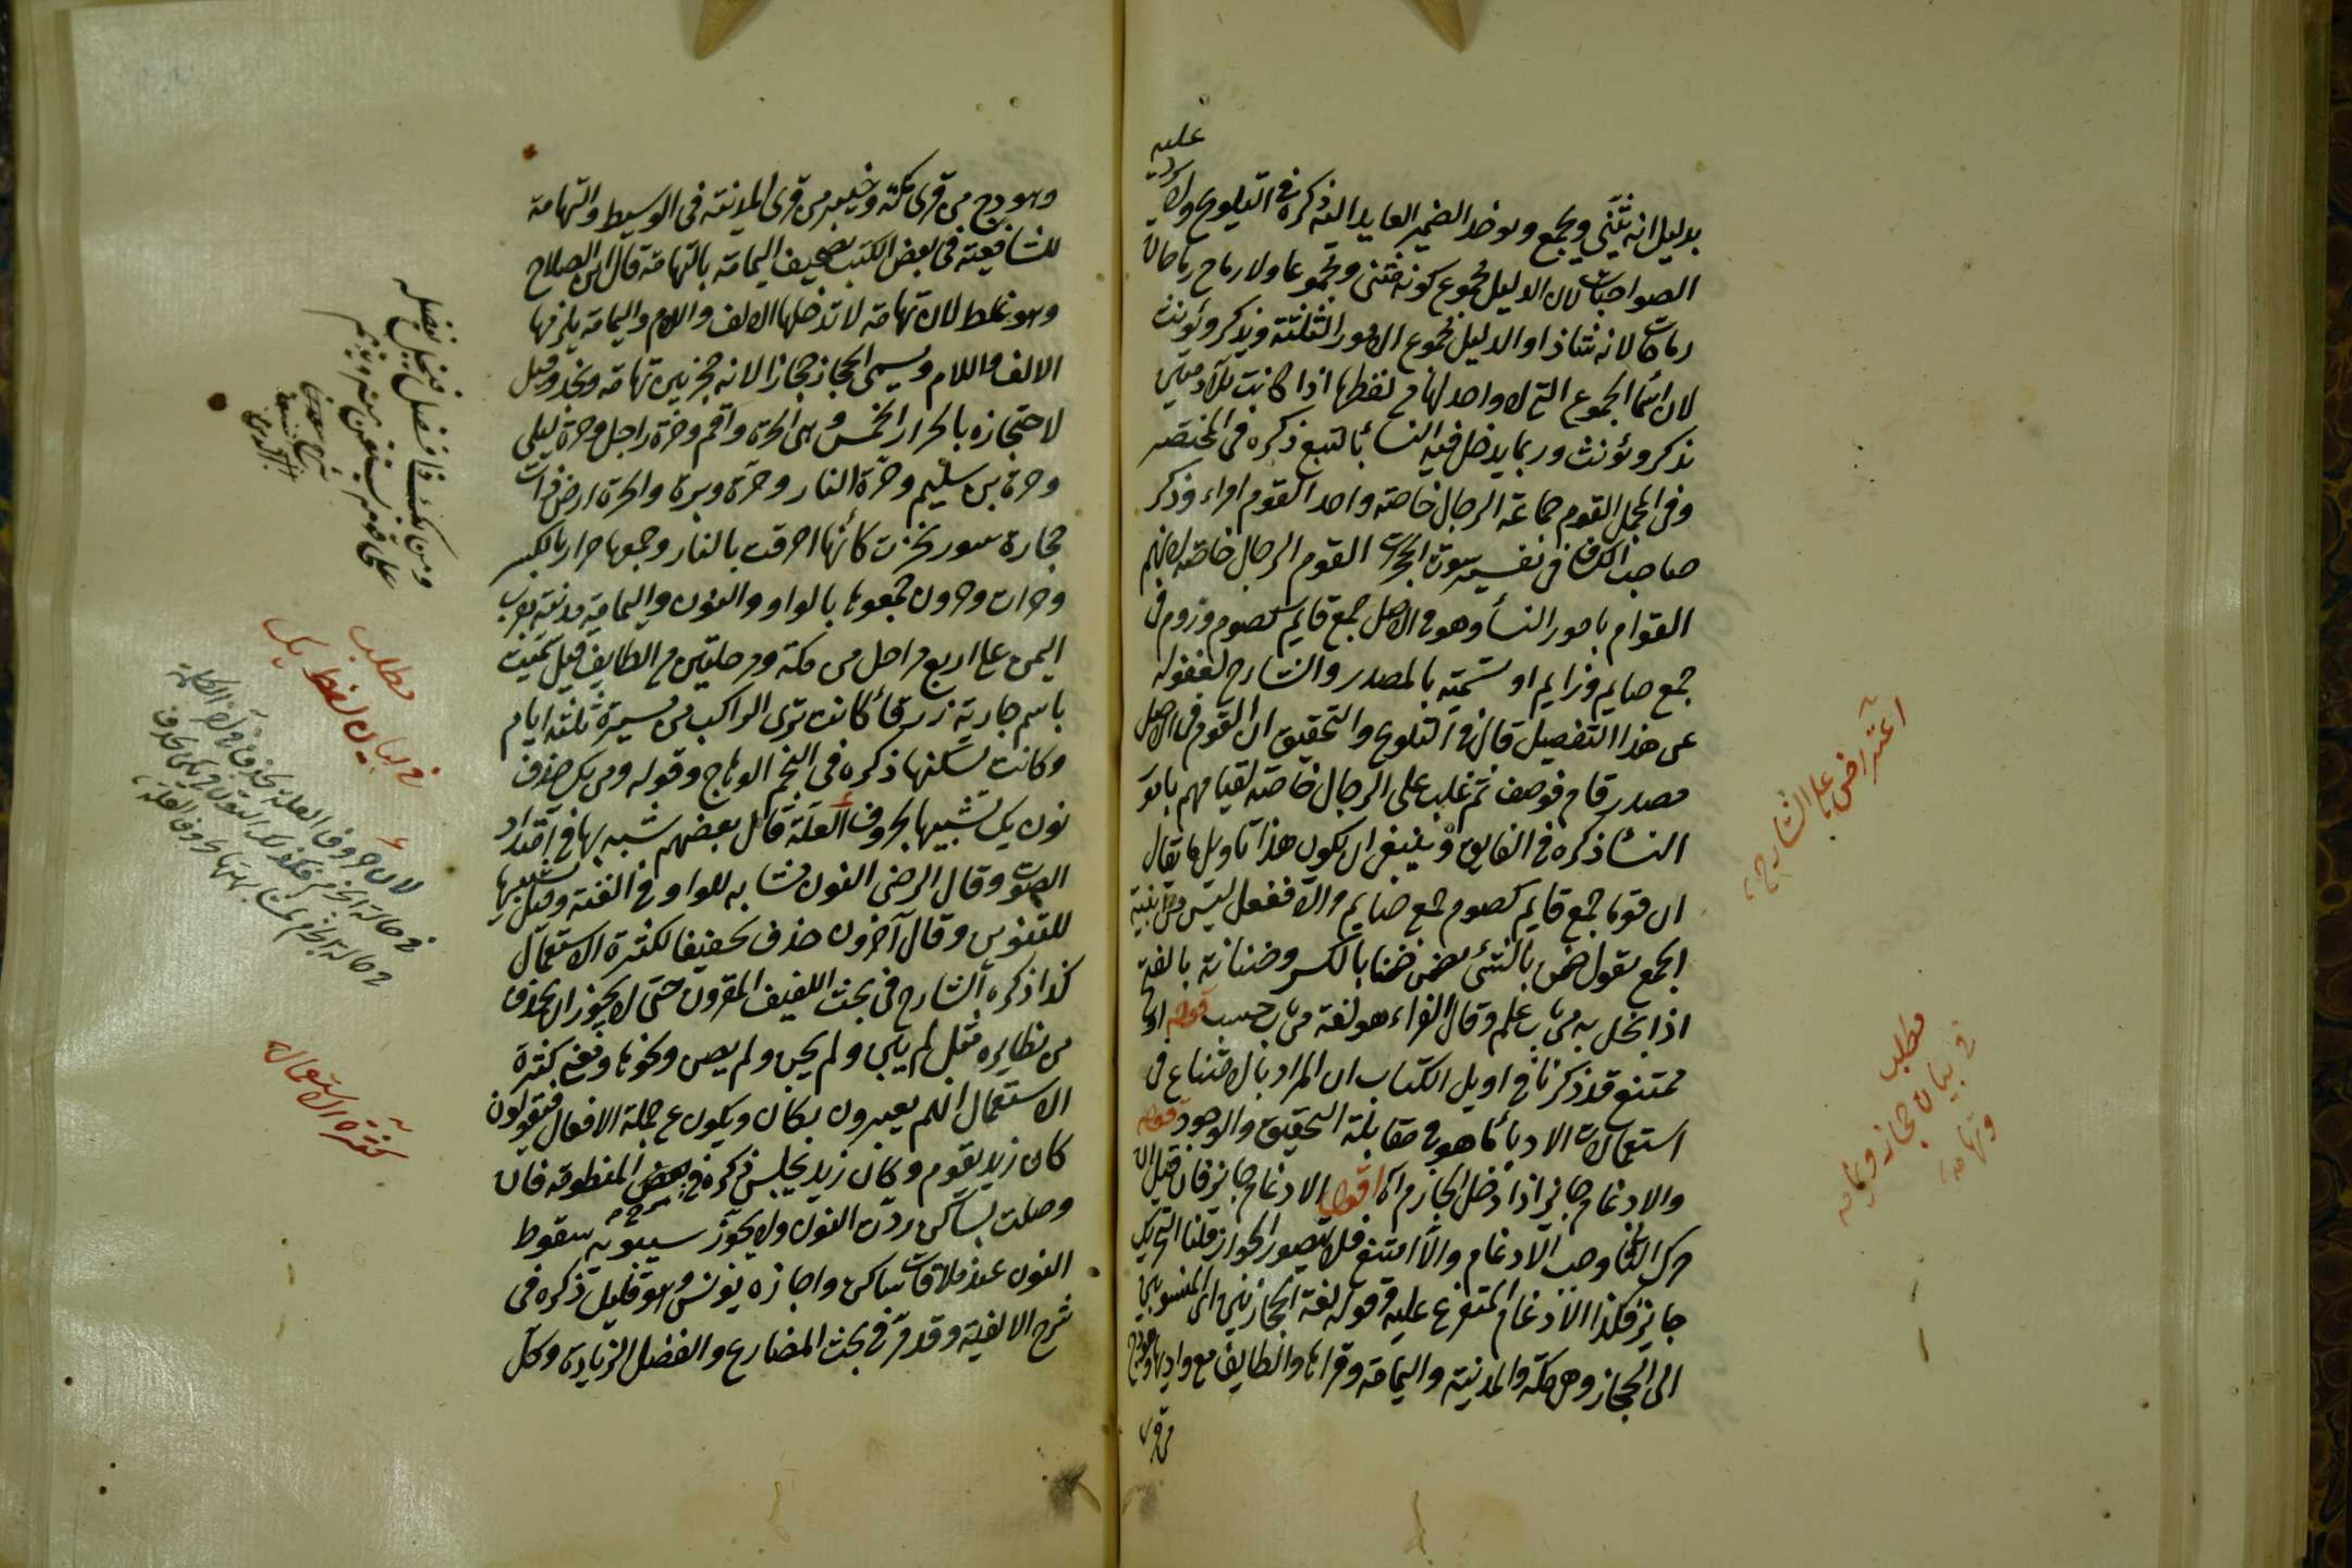 عليه
بدليل انه يثنى ويجمع ويوحد الضمير العايد اليه ذكره في التلويح ولا يرد
الصواحبات لان الدليل مجموع كونه مثنى ومجموعا ولا رماح رماحان
رماحات لانه شاذ او الدليل مجموع الامور الثلثة ويذكر ويؤنث
لان اسما الجموع التي لا واحد لها من لفظها اذا كانت للآدميين
تذكر وتؤنث وربما يدخل فيه النسأ بالتبع ذكره في المختصر
وفي المجمل القوم جماعة الرجال خاصة واحد القوم امراء وذكر
صاحب الكشاف في تفسير سورة الحجرات القوم الرجال خاصة لانهم
القوام بامور النسأ وهو في الاصل جمع قايم كصوم وزوم في
جمع صايم وزايم او تسمية بالمصدر والشارح لغفوله
عن هذا التفصيل قال في التلويح والتحقيق ان القوم في الاصل
مصدر قام فوصف ثم غلب على الرجال خاصة لقيامهم بامور
النسأ ذكره في الفايق وينبغي ان يكون هذا تاويل ما يقال
ان قوما جمع قايم كصوم جمع صايم والا ففعل ليس من ابنية
الجمع يقول ضن بالشئ يضن ضنا بالكسر وضنانة بالفتح
اذا بخل به من باب علم وقال الفراء هو لغة من باب حسب قوله او
ممتنع قد ذكرنا في اويل الكتاب ان المراد بالامتناع في
استعمالات الادبأ ما هو في مقابلة التحقيق والوجود قوله
والادغام جايز اذا دخل الجازم آه اقول الادغام جايز فان قيل ان
حرك الثاني وجب الادغام والا امتنع فلا يتصور الجواز قلنا التحريك
جايز فكذا الادغام المتفرع عليه قوله لغة الحجازيين اي المنسوبين
الى الحجاز وهي مكة والمدينة واليمامة وقراها والطايف مع واديها وهو وج
من قرى
اعتراض على الشارح
مطلب
في بيان حجاز ويمامه
وتهامه
وهو وج من قرى مكة وخيبر من قرى المدينة في الوسيط والتهامة
للشافعية في بعض الكتب تصحيف اليمامة بالتهامة قال ابن الصلاح
وهو غلط لان تهامة لا تدخلها الالف واللام واليمامة يلزمها
الالف واللام ويسمى الحجاز حجازا لانه حجز بين تهامة ونجد وقيل
لاحتجازه بالحرار الخمس وهي الحرة واقم وحرة راجل وحرة ليلى
وحرة بني سليم وحرة النار وحرة وبرة والحرة ارض ذات
حجارة سود نخرت كأنها احرقت بالنار وجمعها حرار بالكسر
وحرات وحرون جمعوها بالواو والنون واليمامة مدينة بقرب
اليمن على اربع مراحل من مكة ومرحلتين من الطايف قيل سميت
باسم جارية زرقأ كانت ترى الراكب من مسيرة ثلثة ايام
وكانت تسكنها ذكره في النجم الوهاج وقوله ومن يك حذف
نون يك تشبيها بحروف العلة قال بعضهم شبه بها في امتداد
الصوت وقال الرضي النون مشابه للواو في الغنة وقيل تشبيها
للتنوين وقال آخرون حذف تخفيفا لكثرة الاستعمال
كذا ذكره الشارح في بحث اللفيف المقرون حتى لا يجوز ان يحذف
من نظايره مثل لم يبن ولم يحن ولم يصن ونحوها ومعنى كثرة
الاستعمال انهم يعبرون بكان ويكون عن جملة الافعال فتقولون
كان زيد يقوم وكان زيد يجلس ذكره في بعض شروح المنظومة فان
وصلت بساكن ردت النون ولا يجوز سيبويه سقوط
النون عند ملاقات ساكن واجازه يونس وهو قليل ذكره في
شرح الالفية وقد مر في بحث المضارع والفضل الزيادة وكل
ومن يك ذا فضل فيبخل بفضله
على قومه يستغن عنه ويذمم
مطلب
في بيان لفظ يك
لان حروف العلة
كثرة الاستعمال